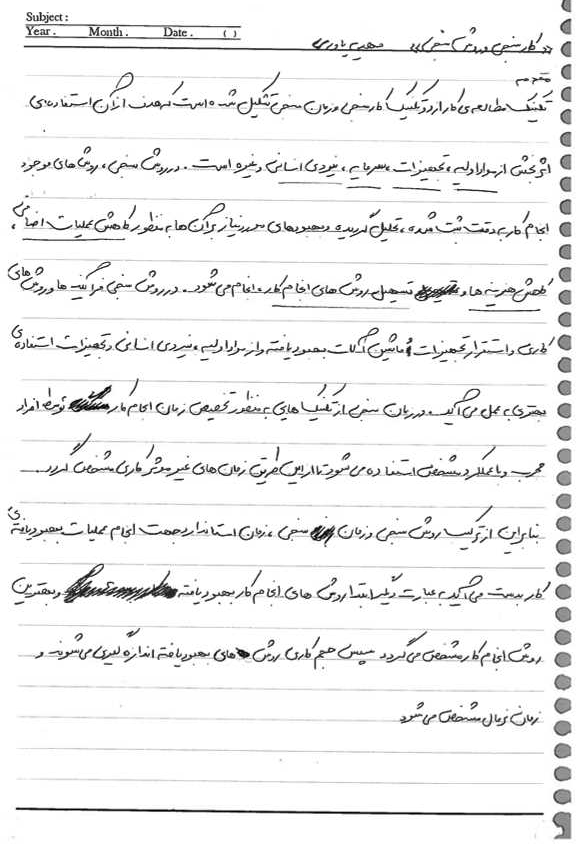 Subject :
Year . Month . Date . ( )
«کارسنجی و روش سنجی» مهدی یاوری
مقدمه
تکنیک مطالعه‌ی کار از دو تکنیک کارسنجی و زمان سنجی تشکیل شده است که هدف از آن استفاده‌ی
اثربخش از مواد اولیه، تجهیزات، سرمایه، نیروی انسانی و غیره است. در روش سنجی، روش های موجود
انجام کار به دقت ثبت شده، تحلیل گردیده و بهبودهای مورد نیاز بر آن ها به منظور کاهش عملیات اضافی،
کاهش هزینه ها و تسهیل روش های انجام کار، انجام می شود. در روش سنجی فرآیند ها و روش های
کاری و استقرار تجهیزات و ماشین آلات بهبود یافته و از مواد اولیه، نیروی انسانی و تجهیزات استفاده‌ی
بهتری به عمل می آید. در زمان سنجی از تکنیک هایی به منظور تخصیص زمان انجام کار توسط افراد
مجرب و با عملکرد مشخص استفاده می شود تا از این طریق زمان های غیر موثر کاری مشخص گردد.
بنابراین از ترکیب روش سنجی و زمان سنجی، زمان استاندارد جهت انجام عملیات بهبود یافته‌ی
کار بدست می آید به عبارت دیگر ابتدا روش های انجام کار بهبود یافته و بهترین
روش انجام کار مشخص می گردد سپس حجم کاری روش های بهبود یافته اندازه گیری می شوند و
زمان نرمال مشخص می شود